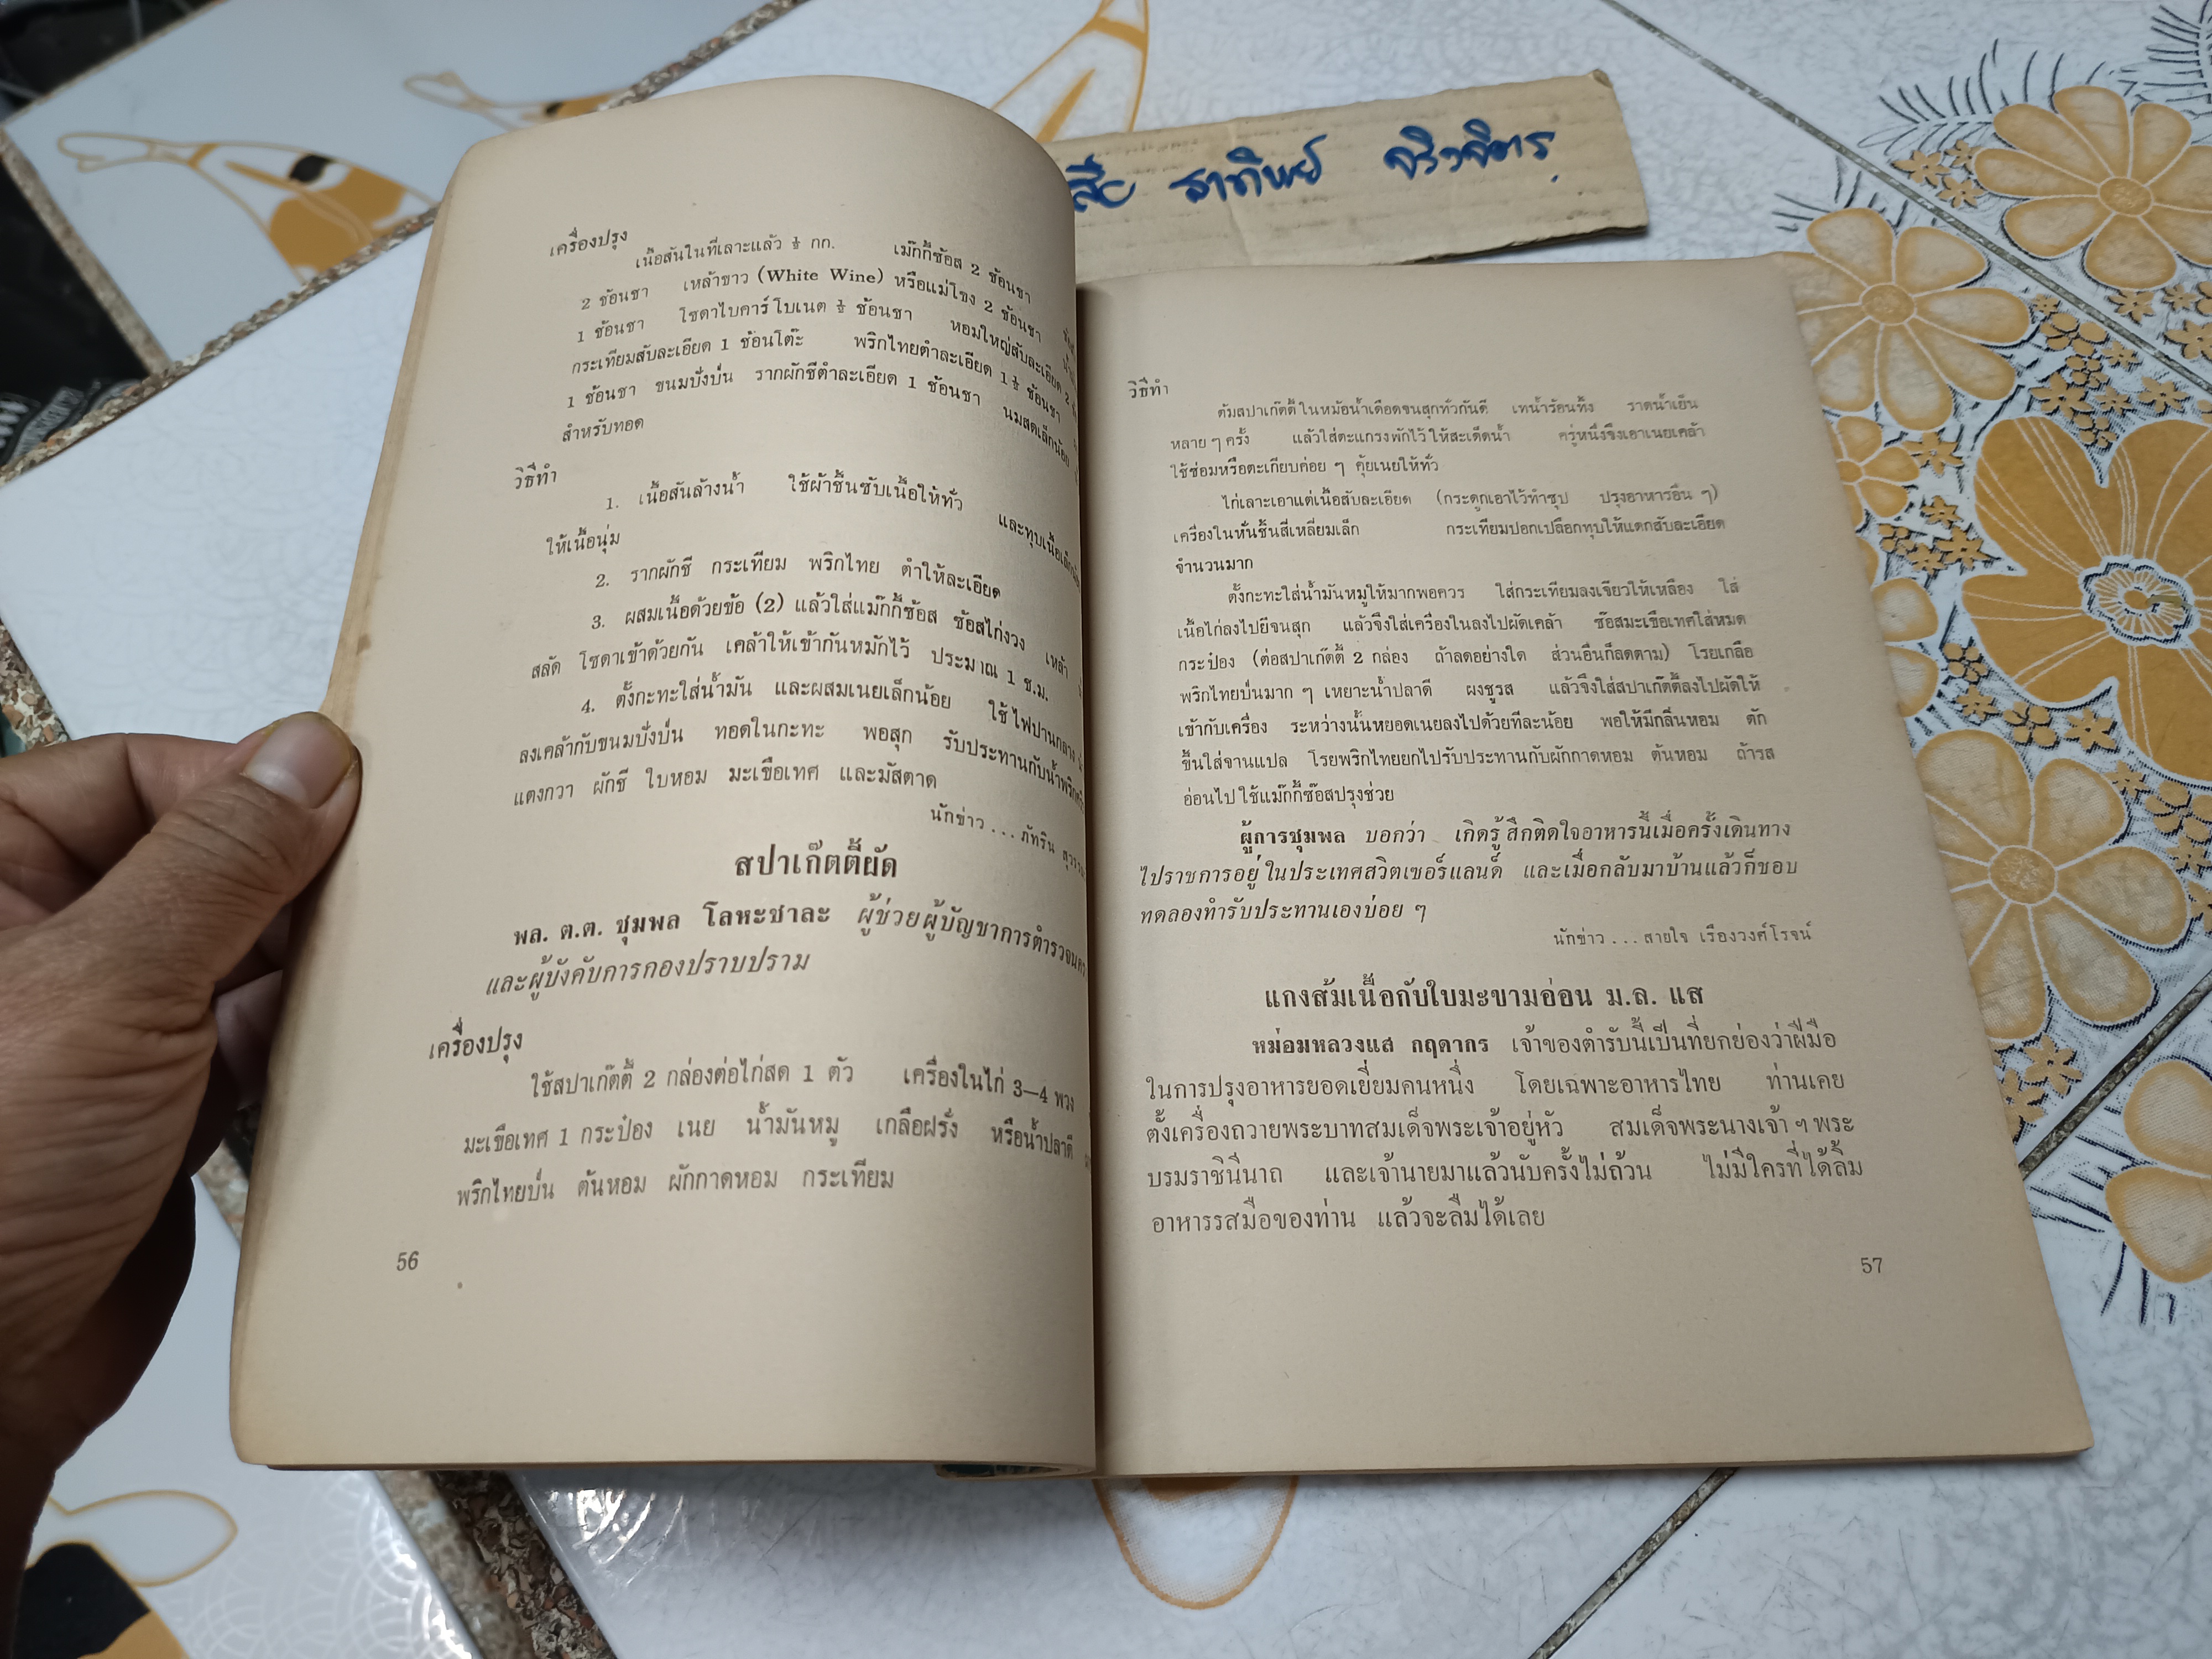 ธาทิพย์
เครื่องปรุง
เนื้อสันในที่เลาะแล้ว ½ กก. เม๊กกี้ซ๊อส 2 ช้อนชา
2 ช้อนชา เหล้าขาว (White Wine) หรือแม่โขง 2 ช้อนชา
1 ช้อนชา โซดาไบคาร์โบเนต ½ ช้อนชา หอมใหญ่สับละเอียด 2
กระเทียมสับละเอียด 1 ช้อนโต๊ะ พริกไทยตำละเอียด 1½ ช้อนชา
1 ช้อนชา ขนมปังป่น รากผักชีตำละเอียด 1 ช้อนชา นมสดเล็กน้อย
สำหรับทอด
วิธีทำ
1. เนื้อสันล้างน้ำ ใช้ผ้าชื้นซับเนื้อให้ทั่ว และทุบเนื้อเล็กน้อย
ให้เนื้อนุ่ม
2. รากผักชี กระเทียม พริกไทย ตำให้ละเอียด
3. ผสมเนื้อด้วยข้อ (2) แล้วใส่แม๊กกี้ซ้อส ซ้อสไก่งวง เหล้า
สลัด โซดาเข้าด้วยกัน เคล้าให้เข้ากันหมักไว้ ประมาณ 1 ช.ม.
4. ตั้งกะทะใส่น้ำมัน และผสมเนยเล็กน้อย ใช้ไฟปานกลาง
ลงเคล้ากับขนมปังป่น ทอดในกะทะ พอสุก รับประทานกับน้ำพริก
แตงกวา ผักชี ใบหอม มะเขือเทศ และมัสตาด
นักข่าว ... ภัทริน
สปาเก๊ตตี้ผัด
พล. ต.ต. ชุมพล โลหะชาละ ผู้ช่วยผู้บัญชาการตำรวจนคร
และผู้บังคับการกองปราบปราม
เครื่องปรุง
ใช้สปาเก๊ตตี้ 2 กล่องต่อไก่สด 1 ตัว เครื่องในไก่ 3–4 พวง
มะเขือเทศ 1 กระป๋อง เนย น้ำมันหมู เกลือฝรั่ง หรือน้ำปลาดี
พริกไทยป่น ต้นหอม ผักกาดหอม กระเทียม
56
วิธีทำ
ต้มสปาเก๊ตตี้ในหม้อน้ำเดือดจนสุกทั่วกันดี เทน้ำร้อนทิ้ง ราดน้ำเย็น
หลาย ๆ ครั้ง แล้วใส่ตะแกรงพักไว้ให้สะเด็ดน้ำ ครู่หนึ่งจึงเอาเนยเคล้า
ใช้ซ่อมหรือตะเกียบค่อย ๆ คุ้ยเนยให้ทั่ว
ไก่เลาะเอาแต่เนื้อสับละเอียด (กระดูกเอาไว้ทำซุป ปรุงอาหารอื่น ๆ)
เครื่องในหั่นชิ้นสี่เหลี่ยมเล็ก กระเทียมปอกเปลือกทุบให้แตกสับละเอียด
จำนวนมาก
ตั้งกะทะใส่น้ำมันหมูให้มากพอควร ใส่กระเทียมลงเจียวให้เหลือง ใส่
เนื้อไก่ลงไปยีจนสุก แล้วจึงใส่เครื่องในลงไปผัดเคล้า ซ๊อสมะเขือเทศใส่หมด
กระป๋อง (ต่อสปาเก๊ตตี้ 2 กล่อง ถ้าลดอย่างใด ส่วนอื่นก็ลดตาม) โรยเกลือ
พริกไทยป่นมาก ๆ เหยาะน้ำปลาดี ผงชูรส แล้วจึงใส่สปาเก๊ตตี้ลงไปผัดให้
เข้ากับเครื่อง ระหว่างนั้นหยอดเนยลงไปด้วยทีละน้อย พอให้มีกลิ่นหอม ตัก
ขึ้นใส่จานแปล โรยพริกไทยยกไปรับประทานกับผักกาดหอม ต้นหอม ถ้ารส
อ่อนไปใช้แม๊กกี้ซ๊อสปรุงช่วย
ผู้การชุมพล บอกว่า เกิดรู้สึกติดใจอาหารนี้เมื่อครั้งเดินทาง
ไปราชการอยู่ในประเทศสวิตเซอร์แลนด์ และเมื่อกลับมาบ้านแล้วก็ชอบ
ทดลองทำรับประทานเองบ่อย ๆ
นักข่าว ... สายใจ เรืองวงศ์โรจน์
แกงส้มเนื้อกับใบมะขามอ่อน ม.ล. แส
หม่อมหลวงแส กฤดากร เจ้าของตำรับนี้เป็นที่ยกย่องว่าฝีมือ
ในการปรุงอาหารยอดเยี่ยมคนหนึ่ง โดยเฉพาะอาหารไทย ท่านเคย
ตั้งเครื่องถวายพระบาทสมเด็จพระเจ้าอยู่หัว สมเด็จพระนางเจ้า ฯ พระ
บรมราชินีนาถ และเจ้านายมาแล้วนับครั้งไม่ถ้วน ไม่มีใครที่ได้ลิ้ม
อาหารรสมือของท่าน แล้วจะลืมได้เลย
57